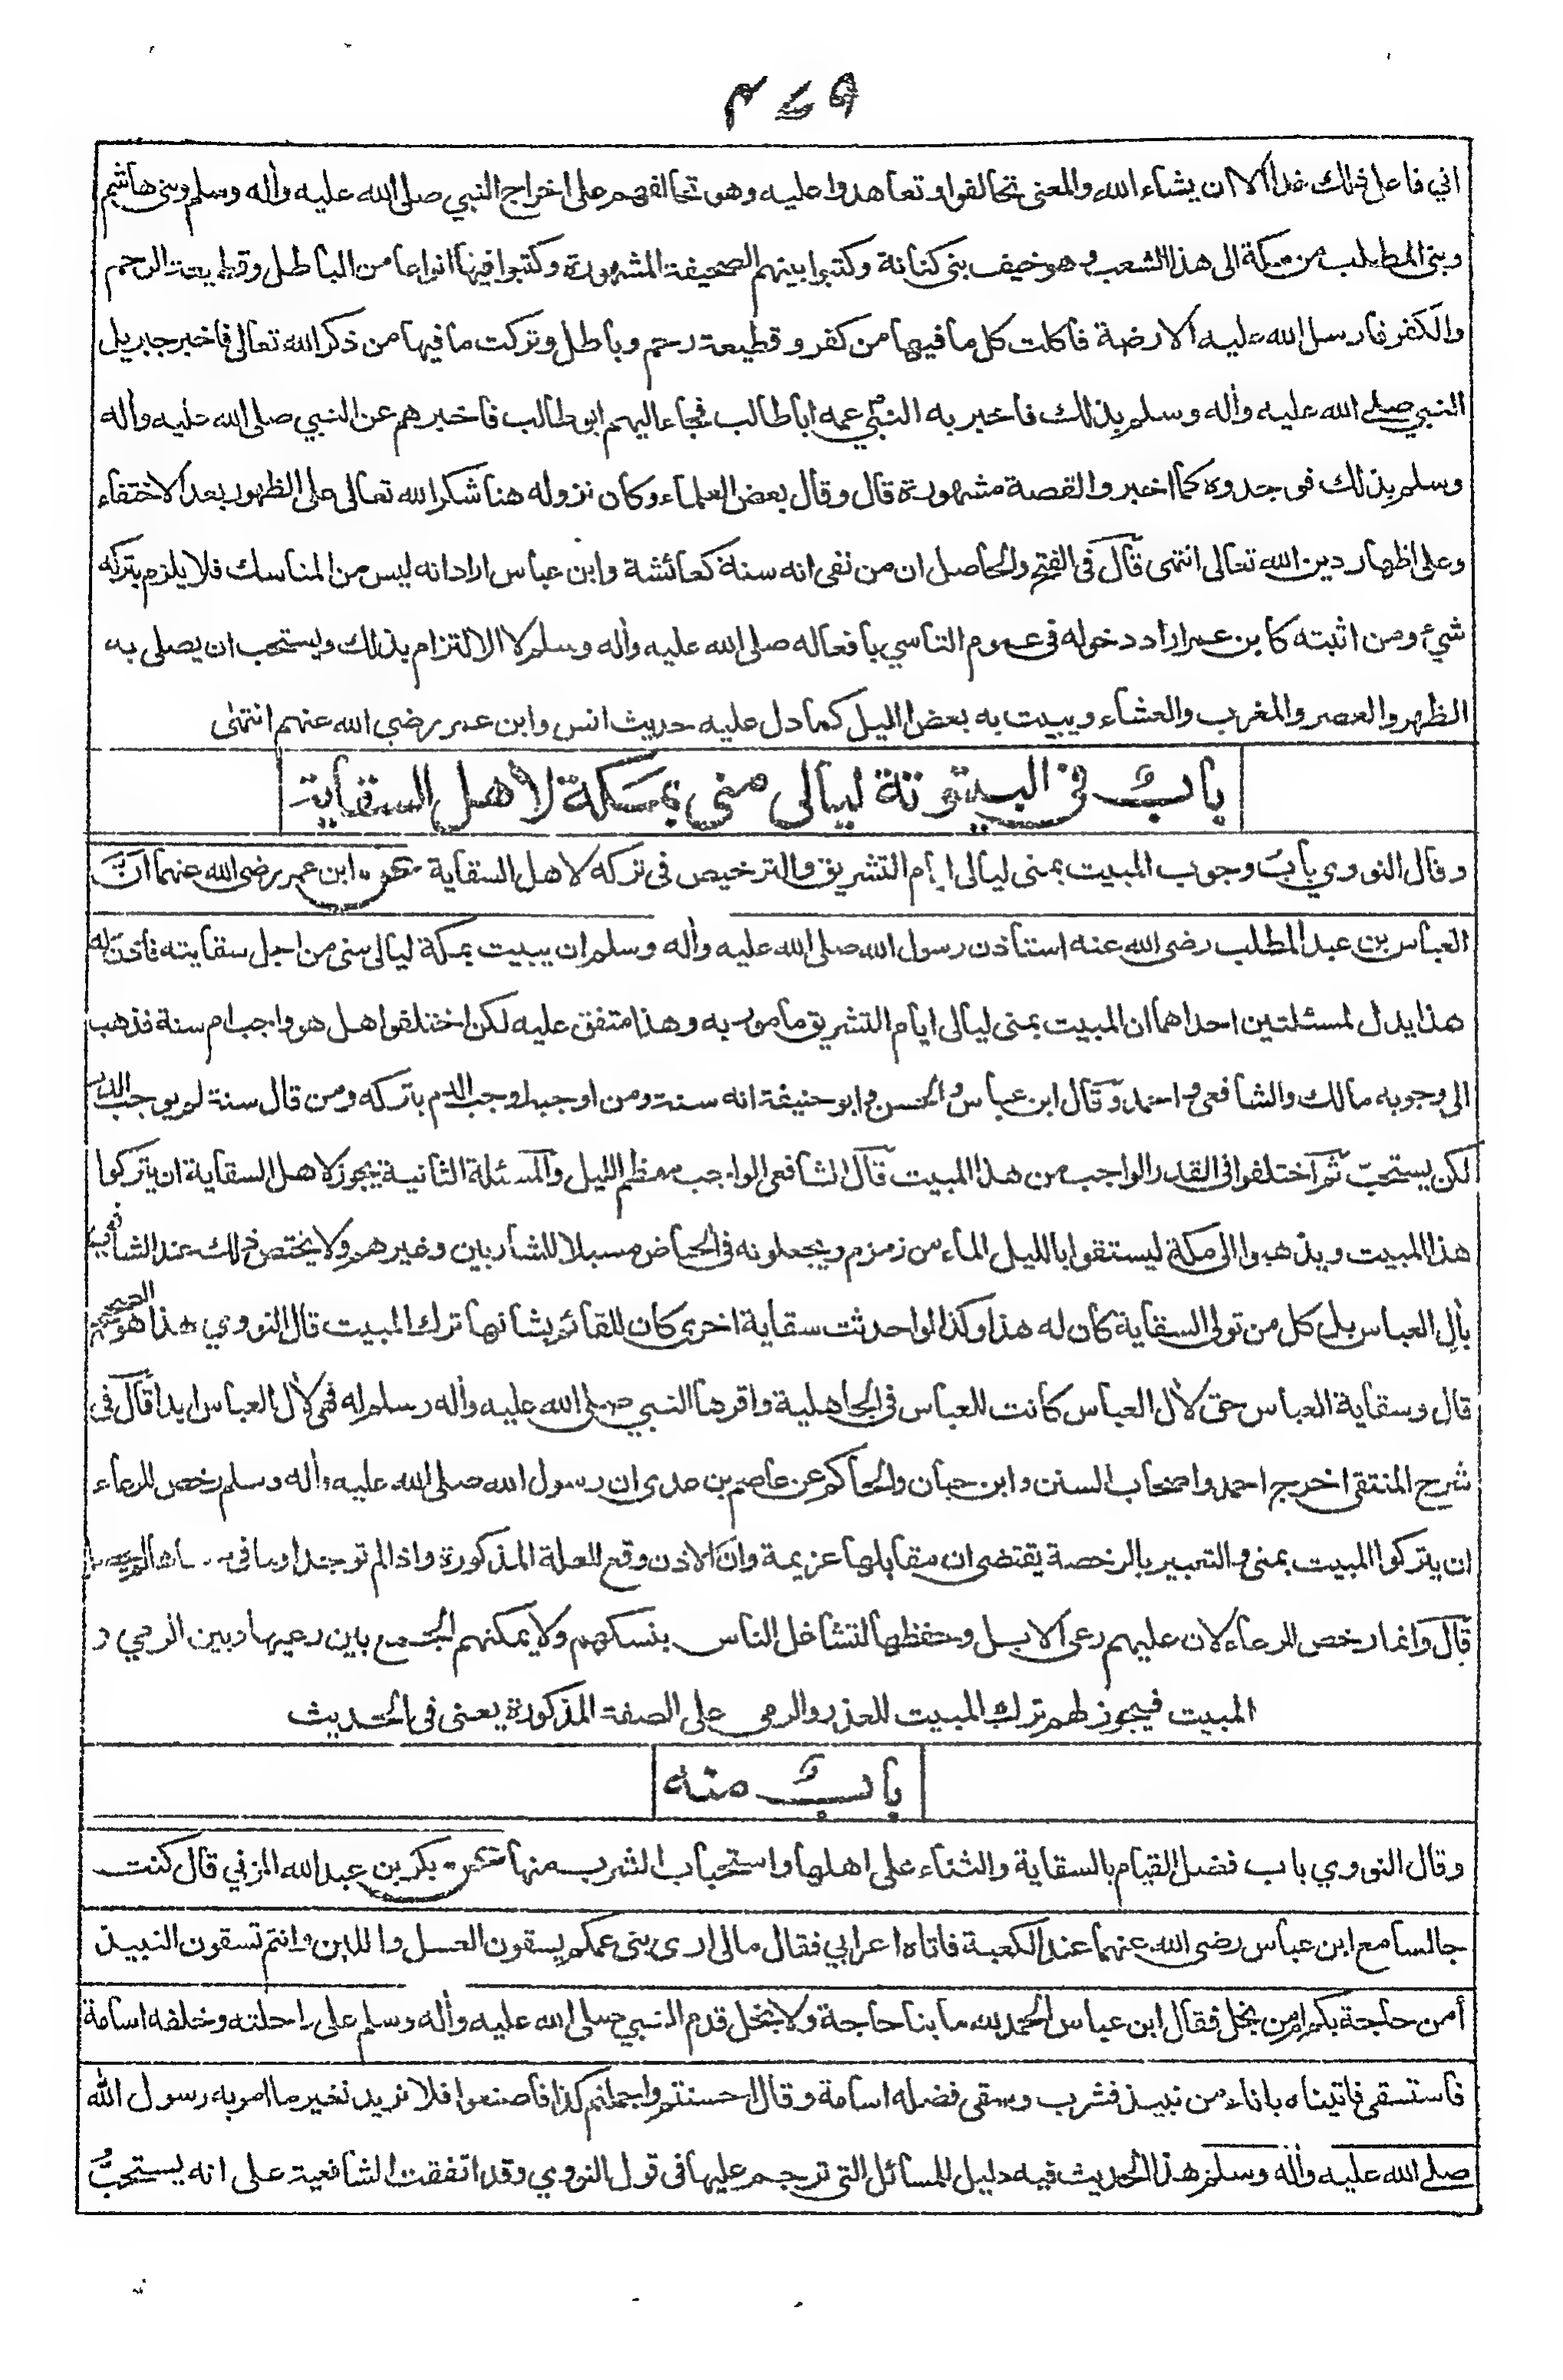 ٤٧٩
اني فاعل ذلك غدا الا ان يشاء الله والمعنى تحالفوا وتعاهدوا عليه وهو تحالفهم على اخراج النبي صلى الله عليه واٰله وسلم وبنى هاشم
وبنى المطلب من مكة الى هذا الشعب وهو خيف بنى كنانة وكتبوا بينهم الصحيفة المشهورة وكتبوا فيها انواعا من الباطل وقطيعة الرحم
والكفر فارسل الله عليه الارضة فاكلت كل ما فيها من كفر وقطيعة رحم وباطل وتركت ما فيها من ذكر الله تعالى فاخبر جبريل
النبي صلى الله عليه واٰله وسلم بذلك فاخبر به النبي عمه ابا طالب فجاء اليهم ابو طالب فاخبرهم عن النبي صلى الله عليه واٰله
وسلم بذلك فوجدوه كما اخبر والقصة مشهورة قال وقال بعض العلماء وكان نزوله هنا شكر الله تعالى على الظهور بعد الاختفاء
وعلى اظهار دين الله تعالى انتهى قال في الفتح والحاصل ان من نفى انه سنة كعائشة وابن عباس اراد انه ليس من المناسك فلا يلزم بتركه
شيء ومن اثبته كابن عمر اراد دخوله في عموم التاسي بافعاله صلى الله عليه واٰله وسلم لا الالتزام بذلك ويستحب ان يصلى به
الظهر والعصر والمغرب والعشاء ويبيت به بعض الليل كما دل عليه حديث انس وابن عمر رضي الله عنهم انتهى
بابٌ في البيتوتة ليالى منى بمكة لاهل السقاية
وقال النووي باب وجوب المبيت بمنى ليالى ايام التشريق والترخيص في تركه لاهل السقاية عن ابن عمر رضى الله عنهما انَّ
العباس بن عبد المطلب رضى الله عنه استاذن رسول الله صلى الله عليه واٰله وسلم ان يبيت بمكة ليالى منى من اجل سقايته فاذن له
هذا يدل لمسئلتين احداهما ان المبيت بمنى ليالى ايام التشريق مامور به وهذا متفق عليه لكن اختلفوا هل هو واجب ام سنة فذهب
الى وجوبه مالك والشافعي واحمد وقال ابن عباس والحسن وابو حنيفة انه سنة ومن اوجبه اوجب الدم بتركه ومن قال سنة لم يوجب الدم
لكن يستحبّ ثم اختلفوا في القدر الواجب من هذا المبيت قال الشافعي الواجب معظم الليل والمسئلة الثانية يجوز لاهل السقاية ان يتركوا
هذا المبيت ويذهبوا الى مكة ليستقوا بالليل الماء من زمزم ويجعلونه في الحياض مسبلا للشاربين وغيرهم ولا يختص ذلك عند الشافعي
بآل العباس بل كل من تولى السقاية كان له هذا وكذا لو احدثت سقاية اخرى كان للقائم بشانها ترك المبيت قال النووي هذا هو الصحيح
قال وسقاية العباس حق لاٰل العباس كانت للعباس في الجاهلية واقرها النبي صلى الله عليه واٰله وسلم له فهي لاٰل العباس ابدا قال في
شرح المنتقى اخرج احمد واصحاب السنن وابن حبان والحاكم عن عاصم بن عدى ان رسول الله صلى الله عليه واٰله وسلم رخص للرعاء
ان يتركوا المبيت بمنى والتعبير بالرخصة يقتضى ان مقابلها عزيمة وان الاذن وقع للعلة المذكورة واذا لم توجد او ما في
قال وانما رخص للرعاء لان عليهم رعى الابل وحفظها لتشاغل الناس بنسكهم ولا يمكنهم الجمع بين رعيها وبين الرمي و
المبيت فيجوز لهم ترك المبيت للعذر والرمى على الصفة المذكورة يعنى في الحديث
بابٌ منه
وقال النووي باب فضل القيام بالسقاية والثناء على اهلها واستحباب الشرب منها عن بكر بن عبد الله المزني قال كنت
جالسا مع ابن عباس رضى الله عنهما عند الكعبة فاتاه اعرابي فقال مالى ارى بنى عمكم يسقون العسل واللبن وانتم تسقون النبيذ
أمن حاجة بكم ام من بخل فقال ابن عباس الحمد لله ما بنا حاجة ولا بخل قدم النبي صلى الله عليه واٰله وسلم على راحلته وخلفه اسامة
فاستسقى فاتيناه باناء من نبيذ فشرب وسقى فضله اسامة وقال احسنتم واجملتم كذا فاصنعوا فلا نريد نغير ما امر به رسول الله
صلى الله عليه واٰله وسلم هذا الحديث فيه دليل للمسائل التي ترجم عليها في قول النووي وقد اتفقت الشافعية على انه يستحبُّ